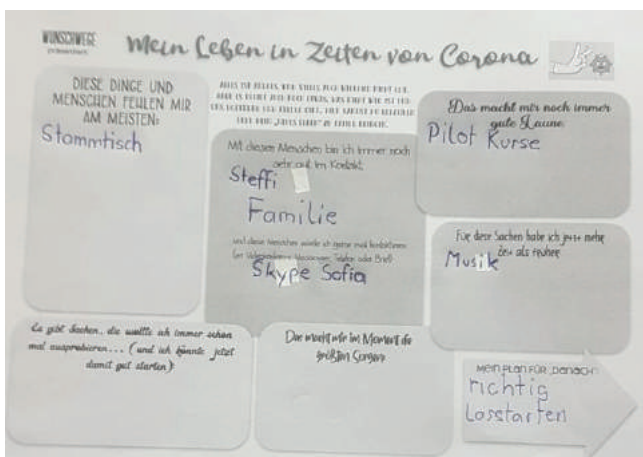 WUNSCHWEGE
präsentiert:
Mein Leben in Zeiten von Corona
DIESE DINGE UND
MENSCHEN FEHLEN MIR
AM MEISTEN:
Stammtisch
Mit diesen Menschen bin ich immer noch
sehr gut im Kontakt:
Steffi
Familie
und diese Menschen würde ich gerne mal kontaktieren
Skype Sofia
Das macht mir noch immer
gute Laune:
Pilot Kurse
Für diese Sachen habe ich jetzt mehr
Zeit als früher
Musik
Es gibt Sachen, die wollte ich immer schon
mal ausprobieren... (und ich könnte jetzt
damit gut starten):
Das macht mir im Moment die
größten Sorgen:
MEIN PLAN FÜR „DANACH“:
richtig
losstarten